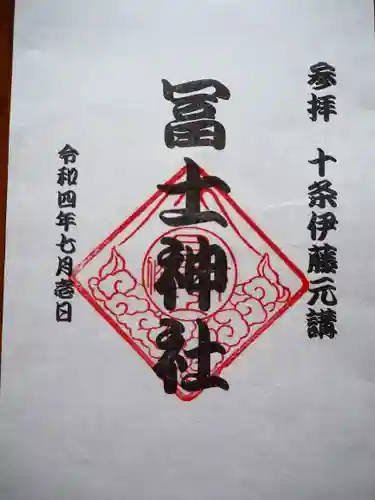 参拝 十条伊藤元講
冨士神社
令和四年七月壱日